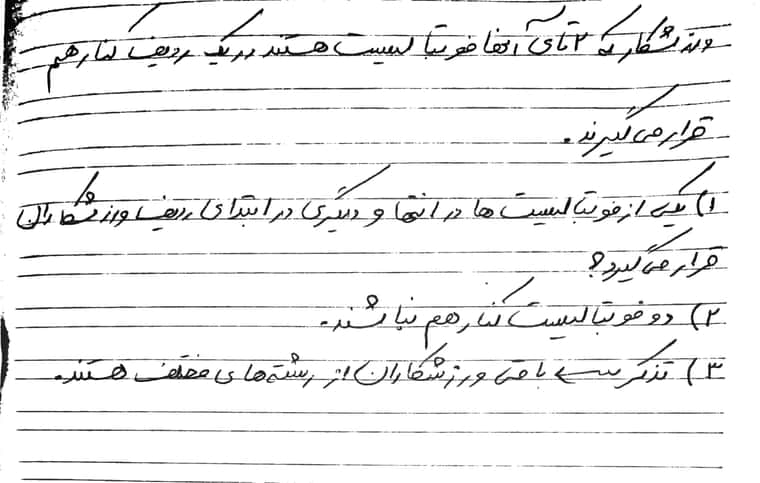 ورزشکار که ۲ تای آنها فوتبالیست هستند در یک ردیف کنار هم
قرار می گیرند.
۱) یکی از فوتبالیست ها در انتها و دیگری در ابتدای ردیف ورزشکاران
قرار می گیرد؟
۲) دو فوتبالیست کنار هم نباشند.
۳) تذکر باقی ورزشکاران از رشته های مختلف هستند.